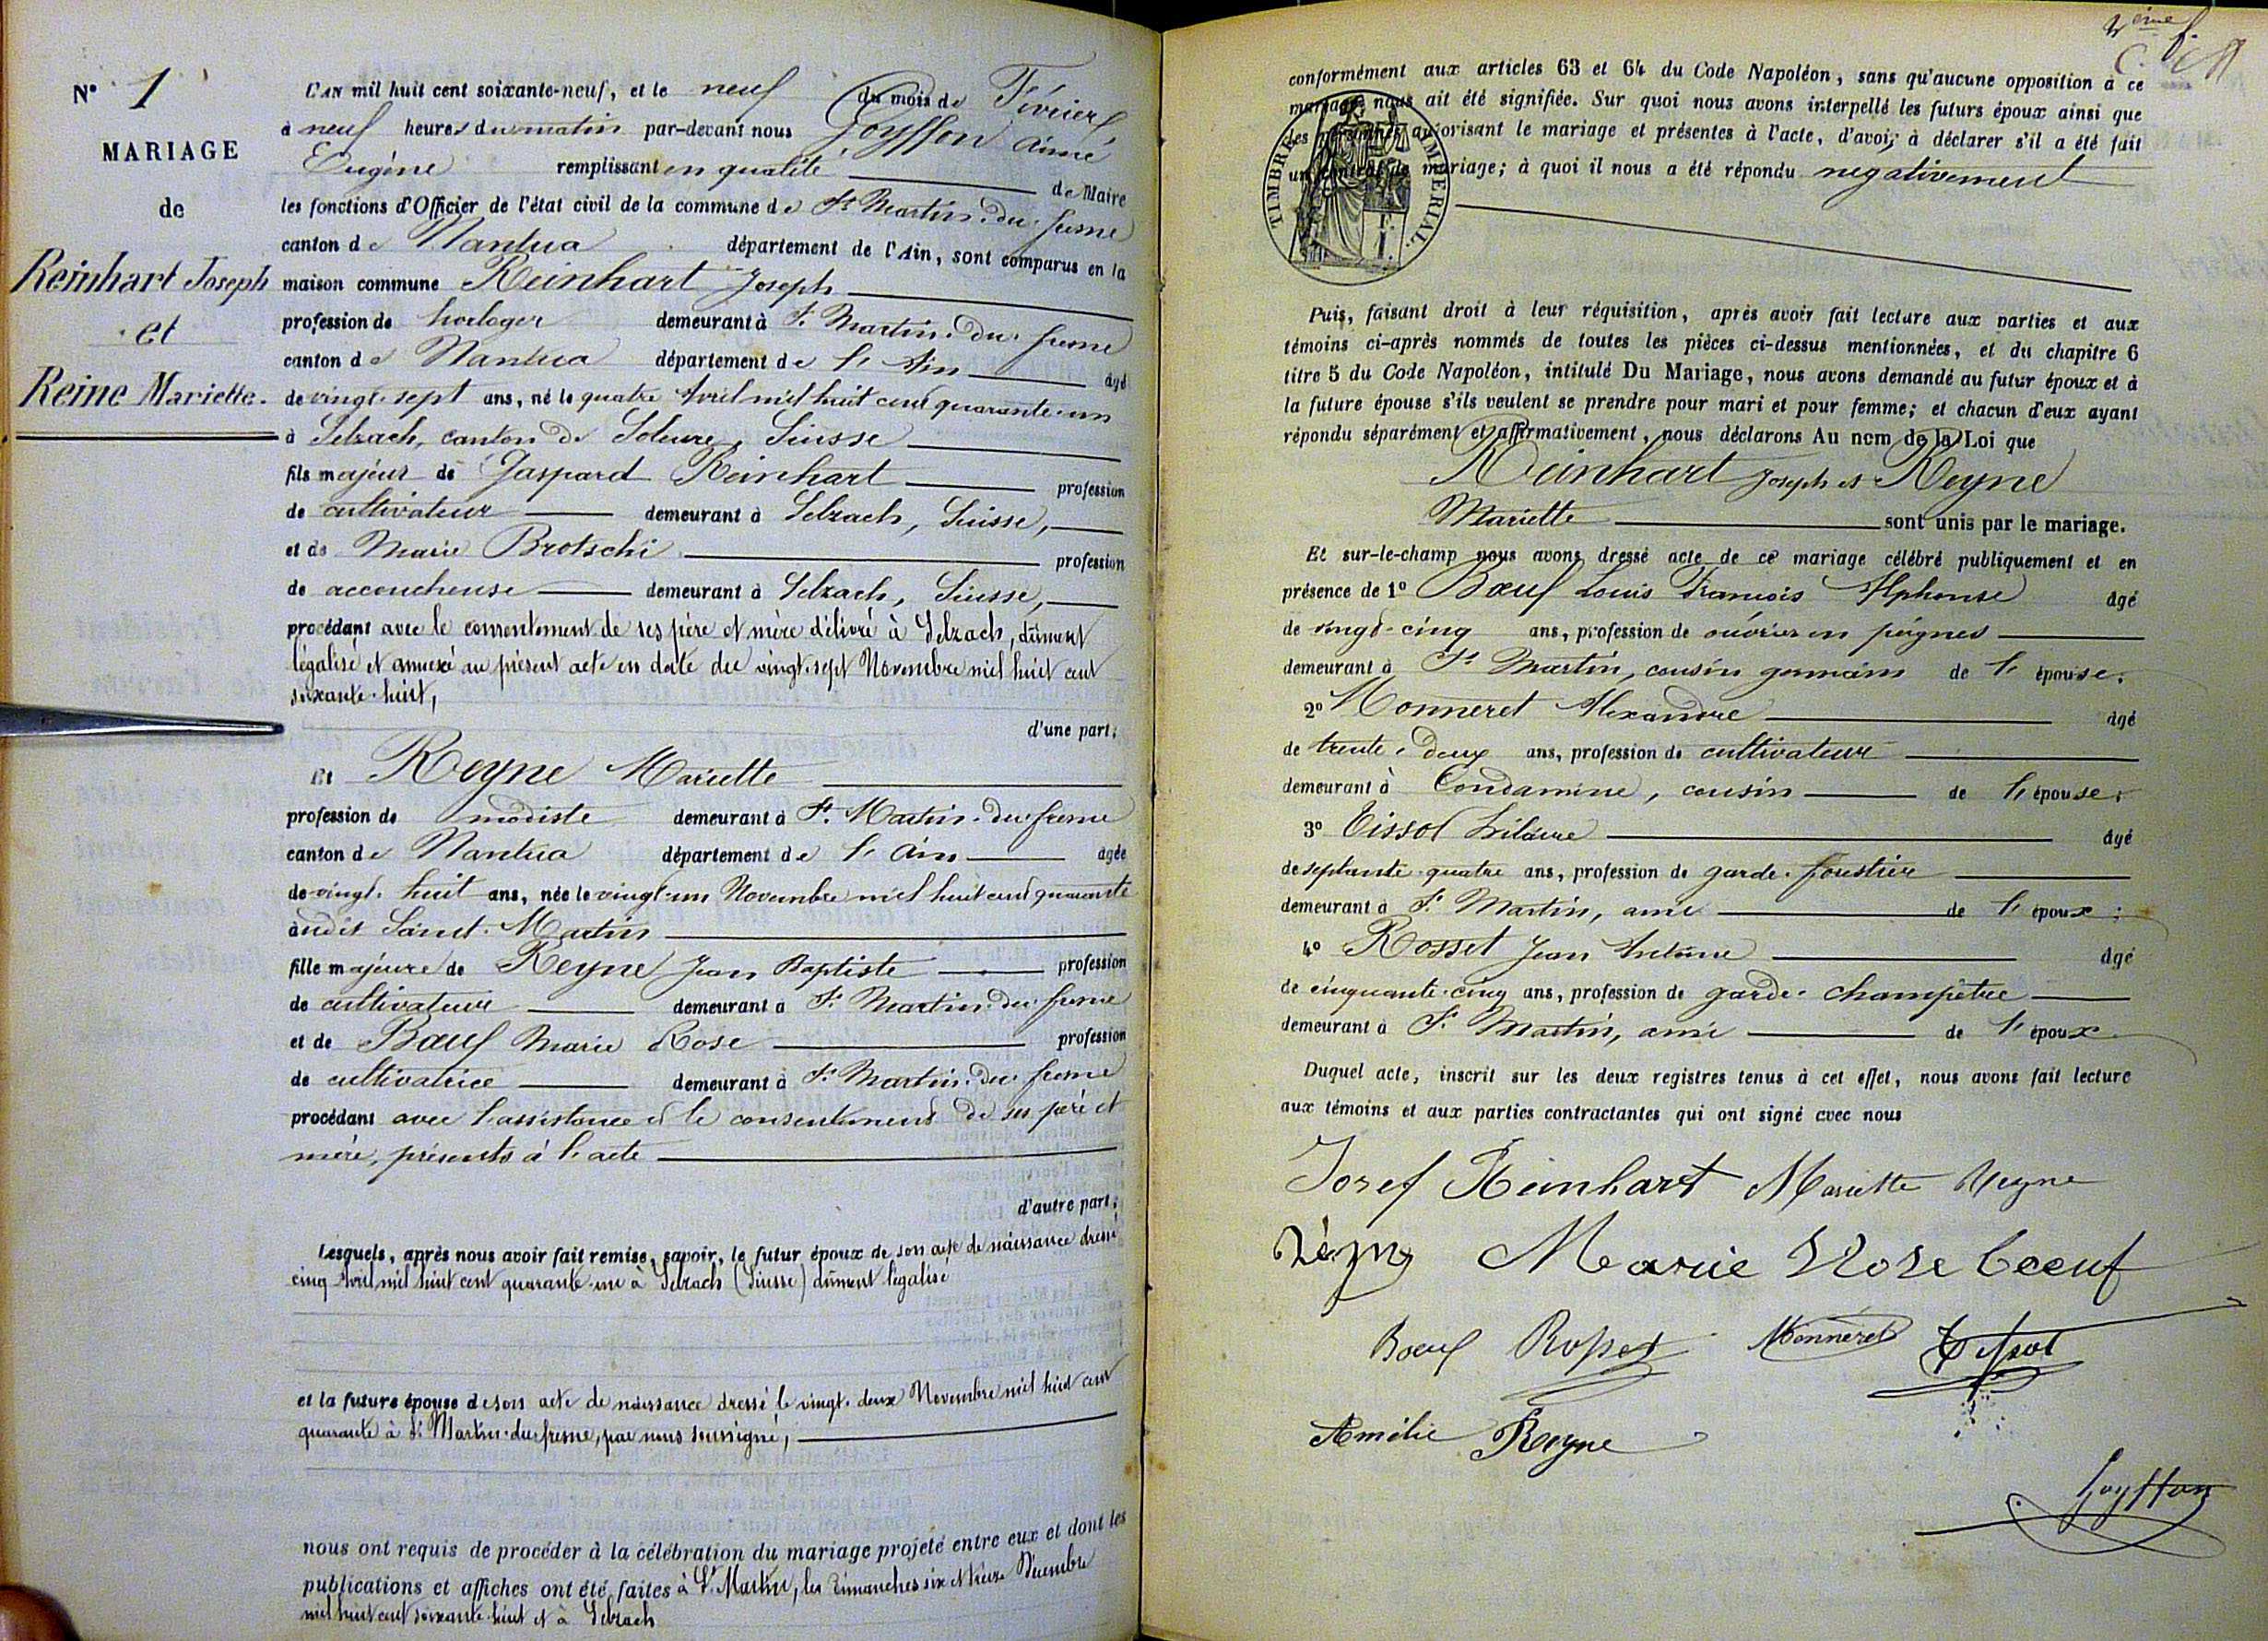 N° 1
MARIAGE
de
Reinhart Joseph
et
Reine Mariette.
L'AN mil huit cent soixante-neuf, et le neuf du mois de Février
à neuf heures du matin par-devant nous Goyffon Aimé
Eugène remplissant en qualité de Maire
les fonctions d'Officier de l'état civil de la commune de St Martin-du-fresne
canton de Nantua département de l'Ain, sont comparus en la
maison commune Reinhart Joseph
profession de horloger demeurant à St Martin-du-fresne
canton de Nantua département de l'Ain âgé
de vingt-sept ans, né le quatre Avril mil huit cent quarante-un
à Selzach, canton de Soleure, Suisse
fils majeur de Gaspard Reinhart profession
de cultivateur demeurant à Selzach, Suisse,
et de Marie Brotschi profession
de accoucheuse demeurant à Selzach, Suisse,
procédant avec le consentement de ses père et mère délivré à Selzach, dûment
légalisé et annexé au présent acte en date du vingt-sept Novembre mil huit cent
soixante-huit,
d'une part;
Et Reyne Mariette
profession de modiste demeurant à St Martin-du-fresne
canton de Nantua département de l'Ain agée
de vingt-huit ans, née le vingt-un Novembre mil huit cent quarante
àudit Saint-Martin
fille majeure de Reyne Jean Baptiste profession
de cultivateur demeurant à St Martin-du-fresne
et de Bœuf Marie Rose profession
de cultivatrice demeurant à St Martin-du-fresne
procédant avec l'assistance et le consentement de ses père et
mère, présents à l'acte
d'autre part;
Lesquels, après nous avoir fait remise, savoir, le futur époux de son acte de naissance dressé
cinq Avril mil huit cent quarante-un à Selzach (Suisse) dûment légalisé
et la future épouse de son acte de naissance dressé le vingt-deux Novembre mil huit cent
quarante à St Martin-du-fresne, par nous soussigné,
nous ont requis de procéder à la célébration du mariage projeté entre eux et dont les
publications et affiches ont été faites à St Martin, les dimanches six et treize Décembre
mil huit cent soixante-huit et à Selzach
2ème
conformément aux articles 63 et 64 du Code Napoléon, sans qu'aucune opposition à ce
mariage nous ait été signifiée. Sur quoi nous avons interpellé les futurs époux ainsi que
les personnes autorisant le mariage et présentes à l'acte, d'avoir à déclarer s'il a été fait
un contrat de mariage; à quoi il nous a été répondu négativement
TIMBRE IMPERIAL.
Puis, faisant droit à leur réquisition, après avoir fait lecture aux parties et aux
témoins ci-après nommés de toutes les pièces ci-dessus mentionnées, et du chapitre 6
titre 5 du Code Napoléon, intitulé Du Mariage, nous avons demandé au futur époux et à
la future épouse s'ils veulent se prendre pour mari et pour femme; et chacun d'eux ayant
répondu séparément et affirmativement, nous déclarons Au nom de la Loi que
Reinhart Joseph et Reyne
Mariette sont unis par le mariage.
Et sur-le-champ nous avons dressé acte de ce mariage célébré publiquement et en
présence de 1° Bœuf Louis François Alphonse âgé
de vingt-cinq ans, profession de ouvrier en peignes
demeurant à St Martin, cousin germain de l'épouse;
2° Monneret Alexandre âgé
de trente-deux ans, profession de cultivateur
demeurant à Condamine, cousin de l'épouse;
3° Tissot hilaire âgé
de septante-quatre ans, profession de garde-forestier
demeurant à St Martin, ami de l'époux;
4° Rosset Jean Antoine âgé
de cinquante-cinq ans, profession de garde-champêtre
demeurant à St Martin, ami de l'époux
Duquel acte, inscrit sur les deux registres tenus à cet effet, nous avons fait lecture
aux témoins et aux parties contractantes qui ont signé avec nous
Josef Reinhart Mariette Reyne
Marie Rose boeuf
Bœuf Rosset Monneret Tissot
Amélie Reyne
Goyffon